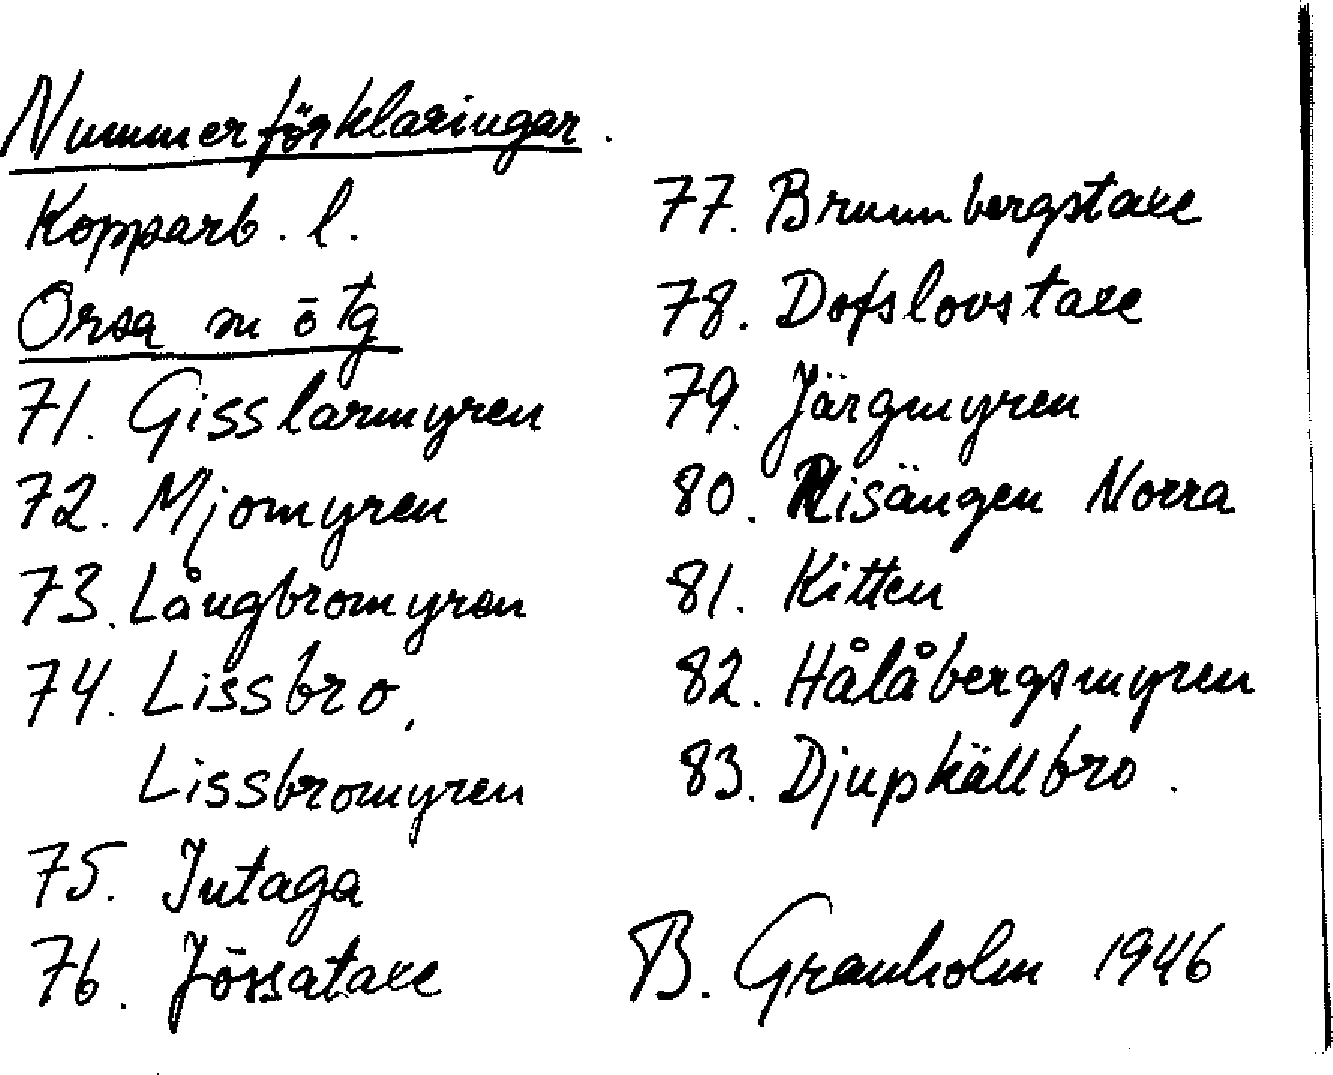 Nummerförklaringar.
Kopparb. l.
Orsa m ō tg
71. Gisslarmyren
72. Mjomyren
73. Långbromyren
74. Lissbro,
Lissbromyren
75. Intaga
76. Jössatace
77. Brunnbergstace
78. Dofslovstace
79. Järgmyren
80. Risängen Norra
81. Kitten
82. Hålåbergsmyren
83. Djupkällbro.
B. Granholm 1946